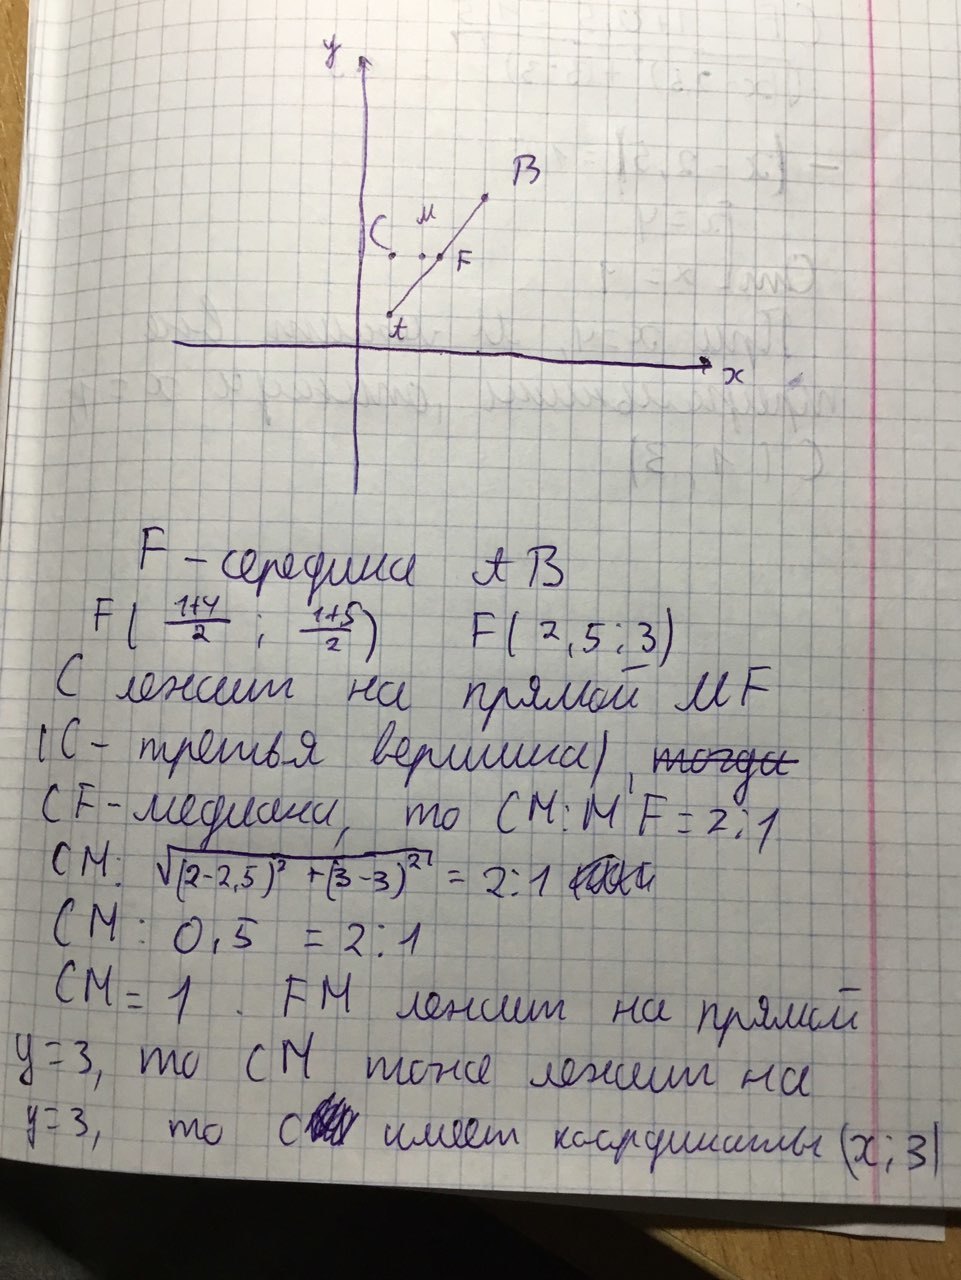 y
B
C
M
F
A
x
F - середина AB
F( 1+4/2 ; 1+5/2 ) F( 2,5 ; 3)
C лежит на прямой MF
(C - третья вершина), тогда
CF - медиана, то CM : MF = 2 : 1
CM : √(2-2,5)² + (3-3)² = 2 : 1
CM : 0,5 = 2 : 1
CM = 1 . FM лежит на прямой
y=3, то CM тоже лежит на
y=3, то C имеет координаты (x ; 3)